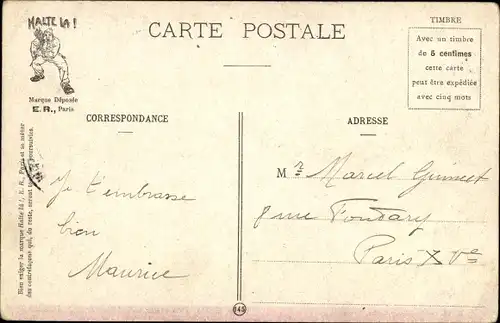 HALTE LÀ !
Marque Déposée
E. R., Paris
CARTE POSTALE
TIMBRE
Avec un timbre
de 5 centimes
cette carte
peut être expédiée
avec cinq mots
CORRESPONDANCE
ADRESSE
Je t'embrasse
bien
Maurice
Mr Marcel
8 rue Fondary
Paris XVe
Bien exiger la marque Halte là !, E. R., Paris et se méfier
des contrefaçons qui, du reste, seront poursuivies.
145